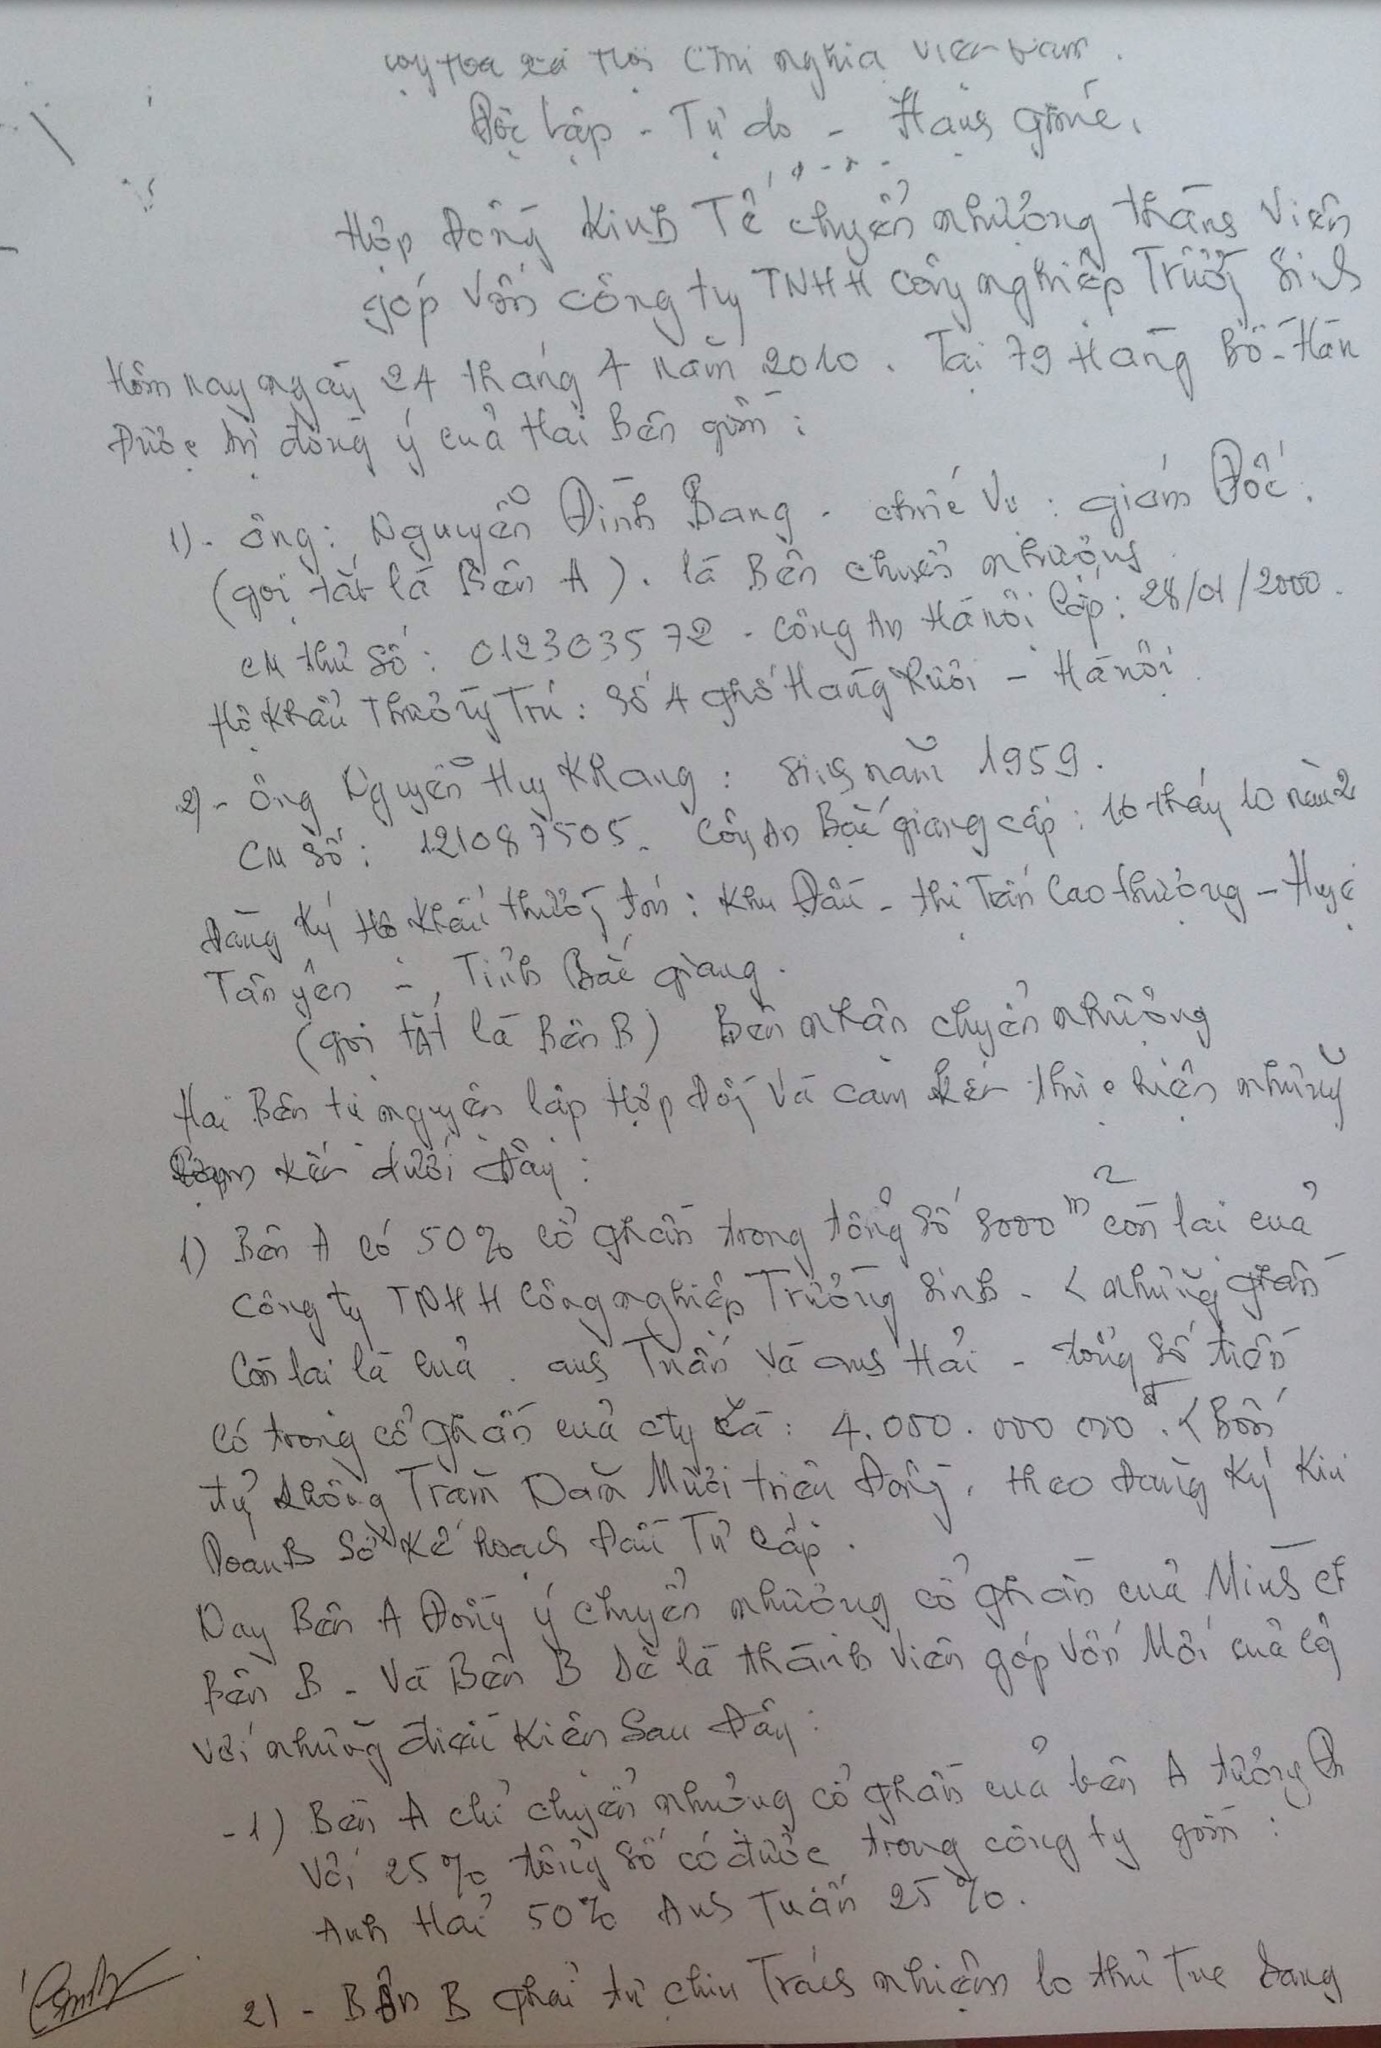 Cộng Hòa Xã Hội Chủ nghĩa Việt Nam.
Độc lập - Tự do - Hạnh phúc.
Hợp Đồng Kinh Tế chuyển nhượng thành viên
góp vốn công ty TNHH công nghiệp Trường Sinh
Hôm nay ngày 24 tháng 4 năm 2010. Tại 79 Hàng Bồ - Hàn
Được sự đồng ý của Hai Bên gồm:
1) - ông: Nguyễn Đình Bang - chức vụ: giám Đốc.
(gọi tắt là Bên A). là Bên chuyển nhượng
CM thư số: 012303572 - Công An Hà nội cấp: 28/01/2000.
Hộ khẩu Thường Trú: số 4 phố Hàng Rươi - Hà nội.
2) - ông Nguyễn Huy Khang: sinh năm 1959.
CM số: 121087505. Công An Bắc giang cấp: 16 tháng 10 năm 2
Đăng ký Hộ khẩu thường trú: Khu Đầu - thị Trấn Cao thượng - Huyệ
Tân yên -, Tỉnh Bắc giang.
(gọi tắt là Bên B) Bên nhận chuyển nhượng
Hai Bên tự nguyện lập Hợp đồng và cam kết thực hiện những
cam kết dưới đây:
1) Bên A có 50% cổ phần trong tổng số 8000 m2 còn lại của
công ty TNHH Công nghiệp Trường Sinh. < những phần
còn lại là của anh Tuấn và anh Hải - tổng số tiền
có trong cổ phần của cty là: 4.050.000 000đ. < Bốn
tỷ không Trăm Năm Mươi triệu đồng, theo đăng ký Kin
Doanh Sở Kế hoạch Đầu Tư cấp.
Nay Bên A đồng ý chuyển nhượng cổ phần của Mình ch
Bên B - và Bên B sẽ là thành viên góp vốn Mới của cô
với những điều kiện sau đây:
-1) Bên A chỉ chuyển nhượng cổ phần của bên A tương
với 25% tổng số có được trong công ty gồm:
Anh Hải 50% Anh Tuấn 25%.
2) - Bên B phải tự chịu Trách nhiệm lo thủ Tục đang